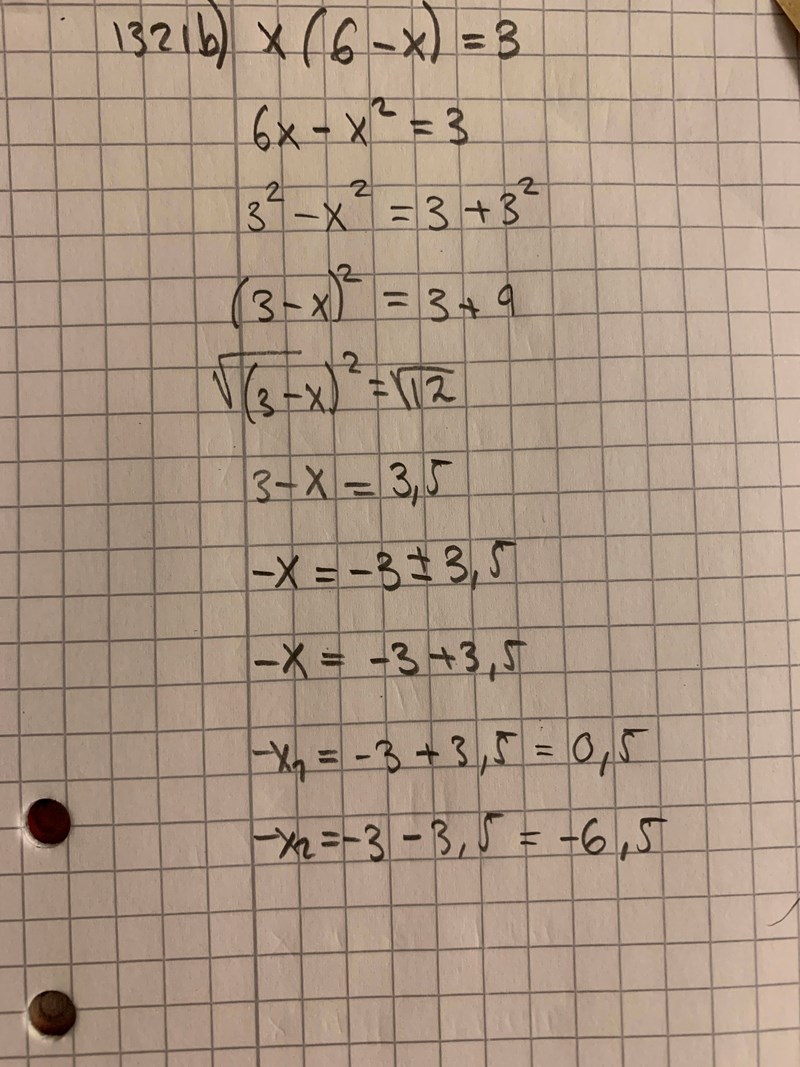 1321b) x(6-x) = 3
6x - x² = 3
3² - x² = 3 + 3²
(3-x)² = 3 + 9
√(3-x)² = √12
3-x = 3,5
-x = -3 ± 3,5
-x = -3 + 3,5
-x₁ = -3 + 3,5 = 0,5
-x₂ = -3 - 3,5 = -6,5